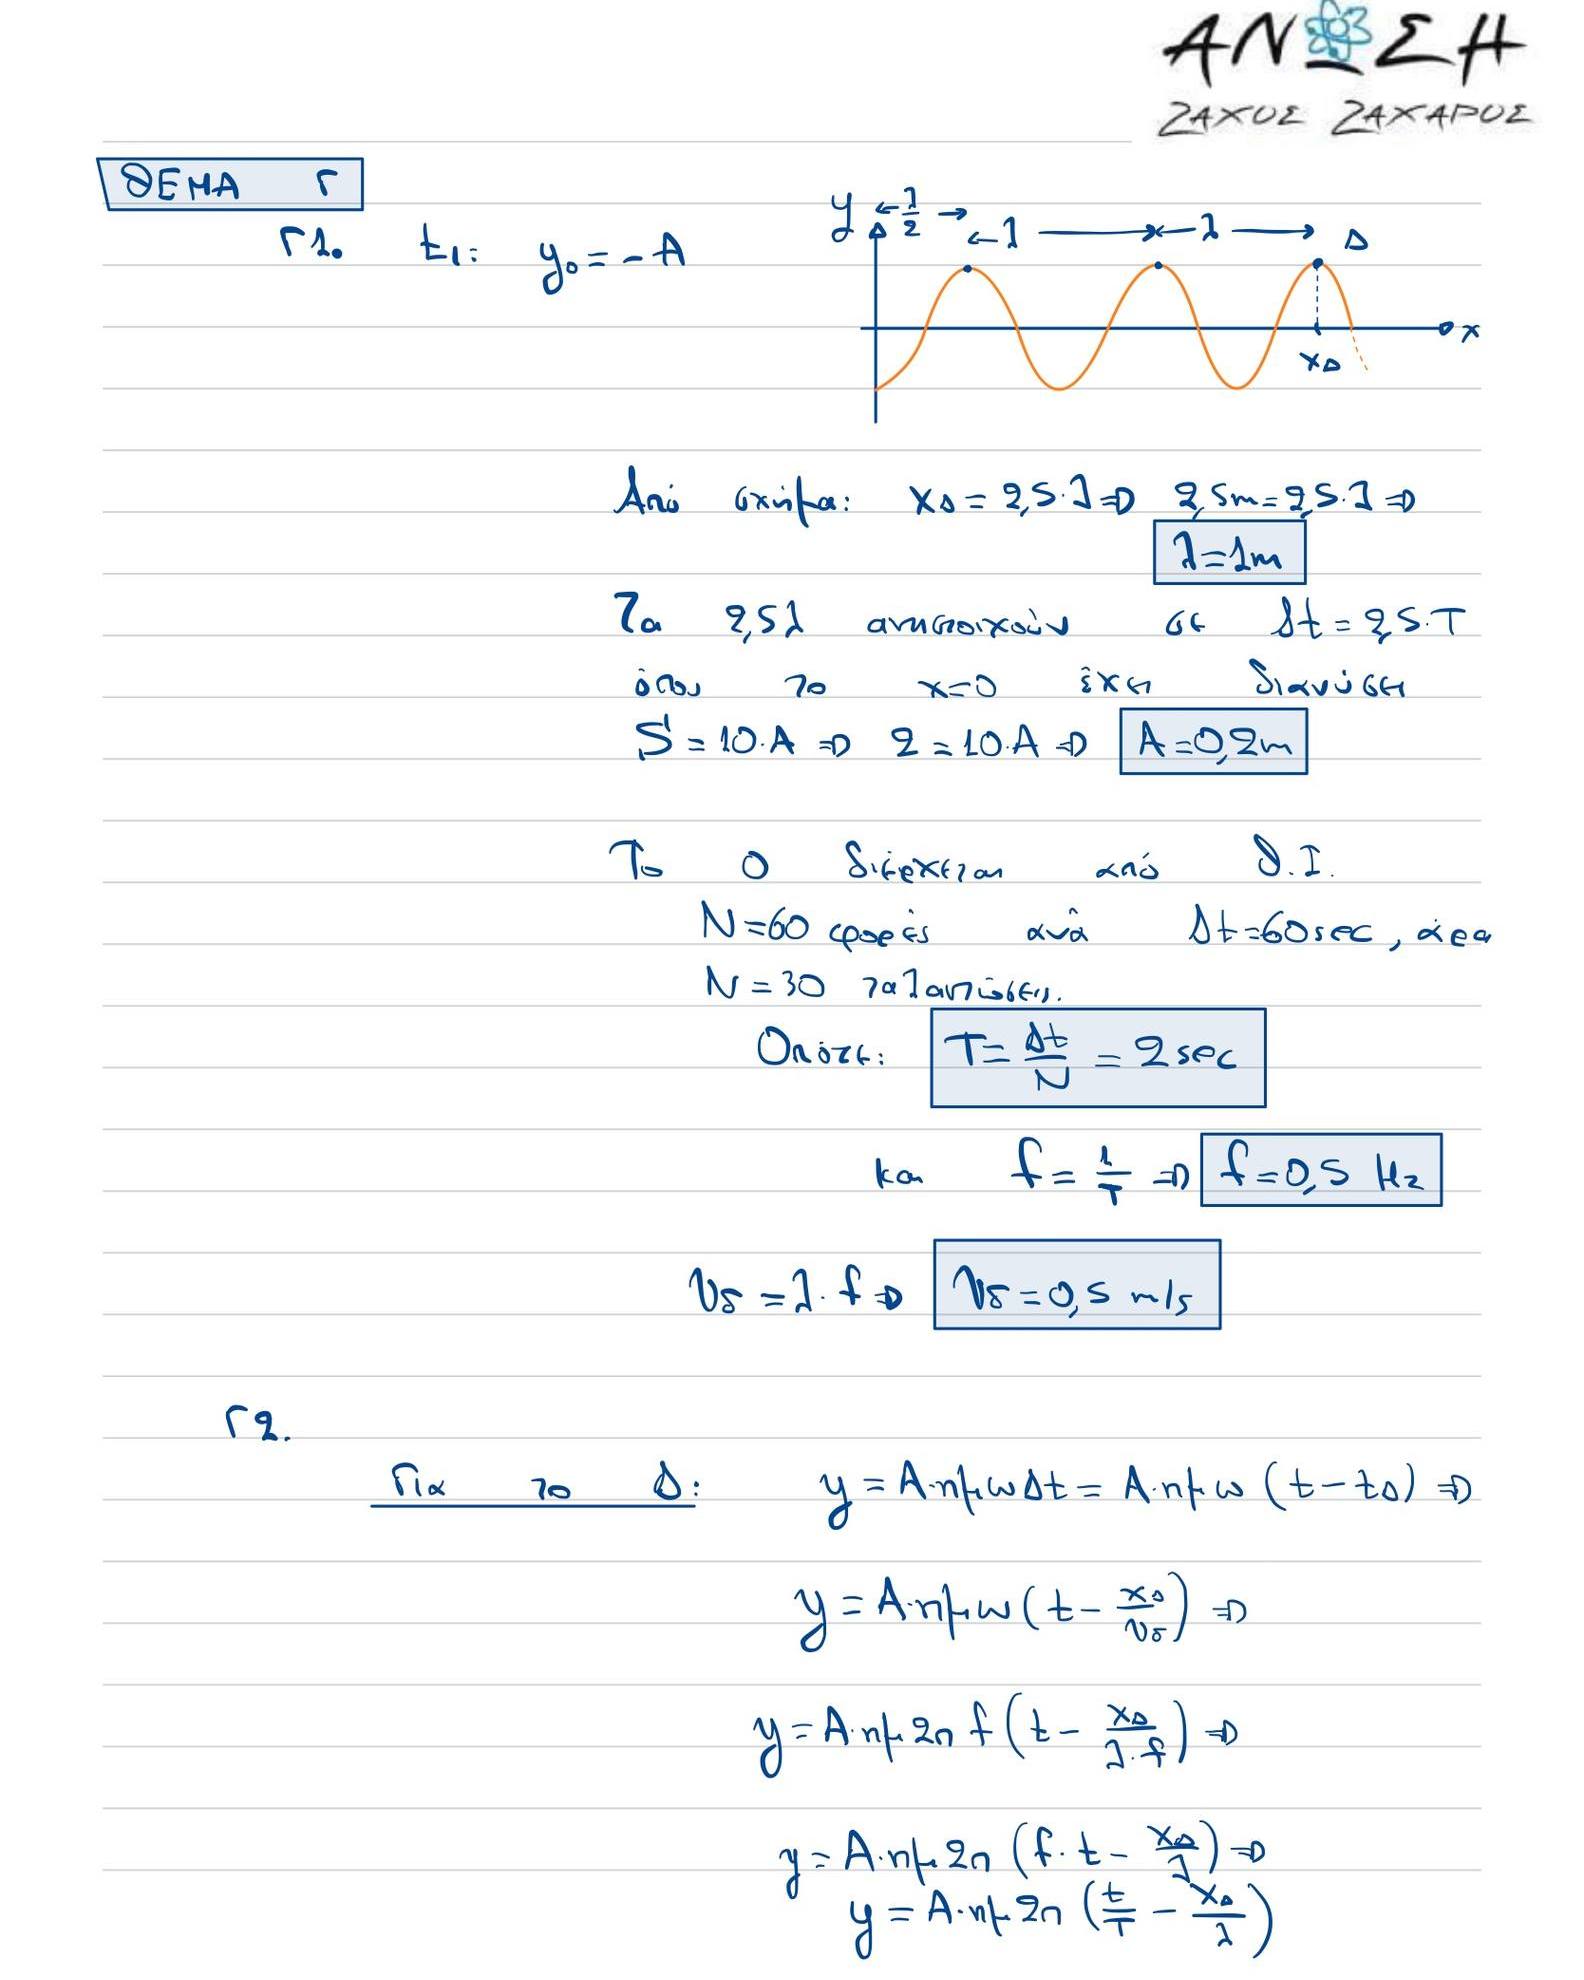 ΑΝΩΣΗ
ΖΑΧΟΣ ΖΑΧΑΡΟΣ
ΘΕΜΑ Γ
Γ1. t₁: y₀ = -A
y λ/2 λ λ Δ
x
xΔ
Από σχήμα: xΔ = 2,5·λ ⇒ 2,5m = 2,5·λ ⇒
λ = 1m
Τα 2,5λ αντιστοιχούν σε Δt = 2,5·T
όπου το x=0 έχει διανύσει
S = 10·A ⇒ 2 = 10·A ⇒ A = 0,2m
Το 0 διέρχεται από Θ.Ι.
N = 60 φορές ανά Δt = 60sec, άρα
N = 30 ταλαντώσεις.
Οπότε: T = Δt/N = 2 sec
και f = 1/T ⇒ f = 0,5 Hz
υδ = λ·f ⇒ υδ = 0,5 m/s
Γ2.
Για το Δ: y = A·ημωΔt = A·ημω (t - tΔ) ⇒
y = A·ημω (t - xΔ/υδ) ⇒
y = A·ημ2π f (t - xΔ/λ·f) ⇒
y = A·ημ2π (f·t - xΔ/λ) ⇒
y = A·ημ2π (t/T - xΔ/λ)